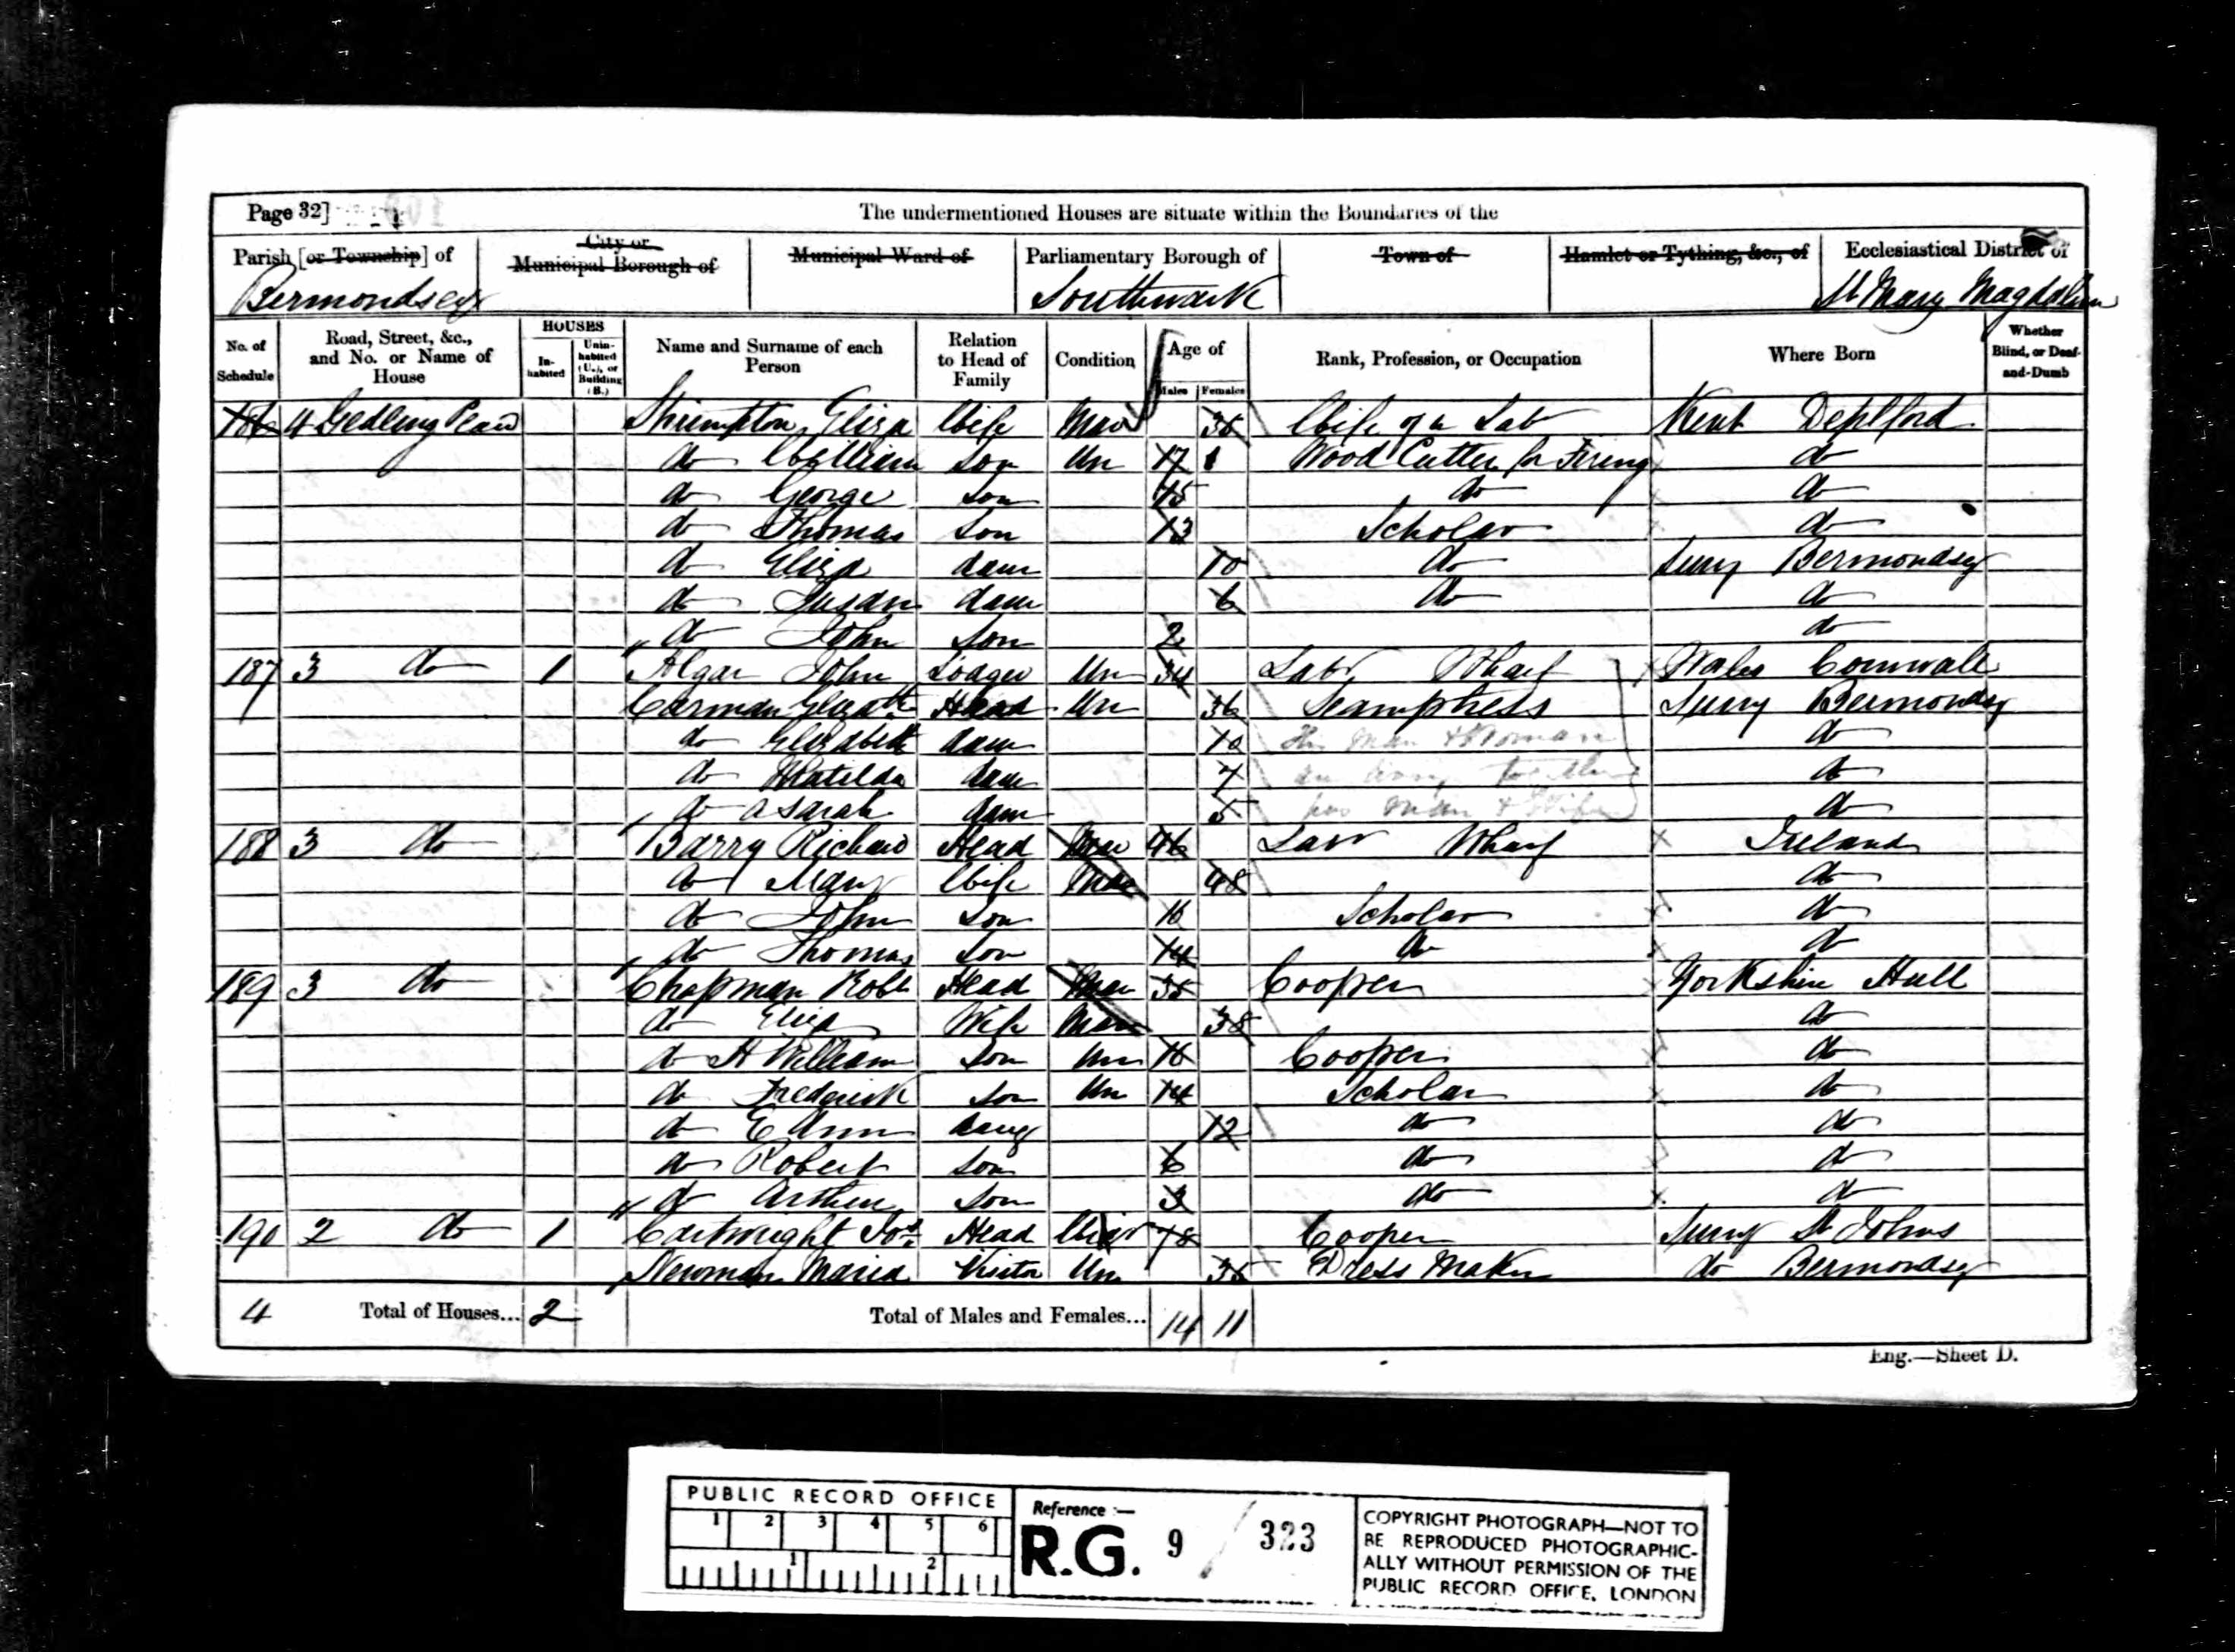 Page 32]
The undermentioned Houses are situate within the Boundaries of the
Parish [or Township] of City or Municipal Borough of Municipal Ward of Parliamentary Borough of Town of Hamlet or Tything, &c., of Ecclesiastical District of
Bermondsey Southwark St Mary Magdalen
No. of Schedule Road, Street, &c., and No. or Name of House HOUSES Inhabited Uninhabited (U.), or Building (B.) Name and Surname of each Person Relation to Head of Family Condition Age of Males Females Rank, Profession, or Occupation Where Born Whether Blind, or Deaf-and-Dumb
186 4 Gedling Shrimpton Eliza Wife Mar 38 Wife of a Lab Kent Deptford
do William Son Un 17 Wood Cutter for Firing do
do George Son 15 do do
do Thomas Son 13 Scholar do
do Eliza daur 10 do Surry Bermondsey
do Susan daur 6 do do
do John Son 2 do
187 3 do 1 Algar John Lodger Un 34 Labr Wharf Wales Cornwall
Carman Elizath Head Un 36 Seamptress Surry Bermondsey
do Elizabeth daur 10 This Man & Woman do
do Matilda daur 7 are living together do
do A Sarah daur 5 as Man & Wife do
188 3 do Barry Richard Head Mar 46 Labr Wharf Ireland
do Mary Wife Mar 48 do
do John Son 16 Scholar do
do Thomas Son 14 do do
189 3 do Chapman Robt Head Mar 38 Cooper Yorkshire Hull
do Eliza Wife Mar 38 do
do H William Son Un 16 Cooper do
do Frederick Son Un 14 Scholar do
do E Ann daug 12 do do
do Robert Son 6 do do
do Arthur Son 3 do do
190 2 do 1 Cartwright Head Widr 78 Cooper Surry St Johns
Newman Maria Visitor Un 35 Dress Maker do Bermondsey
4 Total of Houses... 2 Total of Males and Females... 14 11
Eng.—Sheet D.
PUBLIC RECORD OFFICE
1 2 3 4 5 6
1 2
Reference :—
R.G. 9 / 323
COPYRIGHT PHOTOGRAPH—NOT TO
BE REPRODUCED PHOTOGRAPHIC-
ALLY WITHOUT PERMISSION OF THE
PUBLIC RECORD OFFICE, LONDON